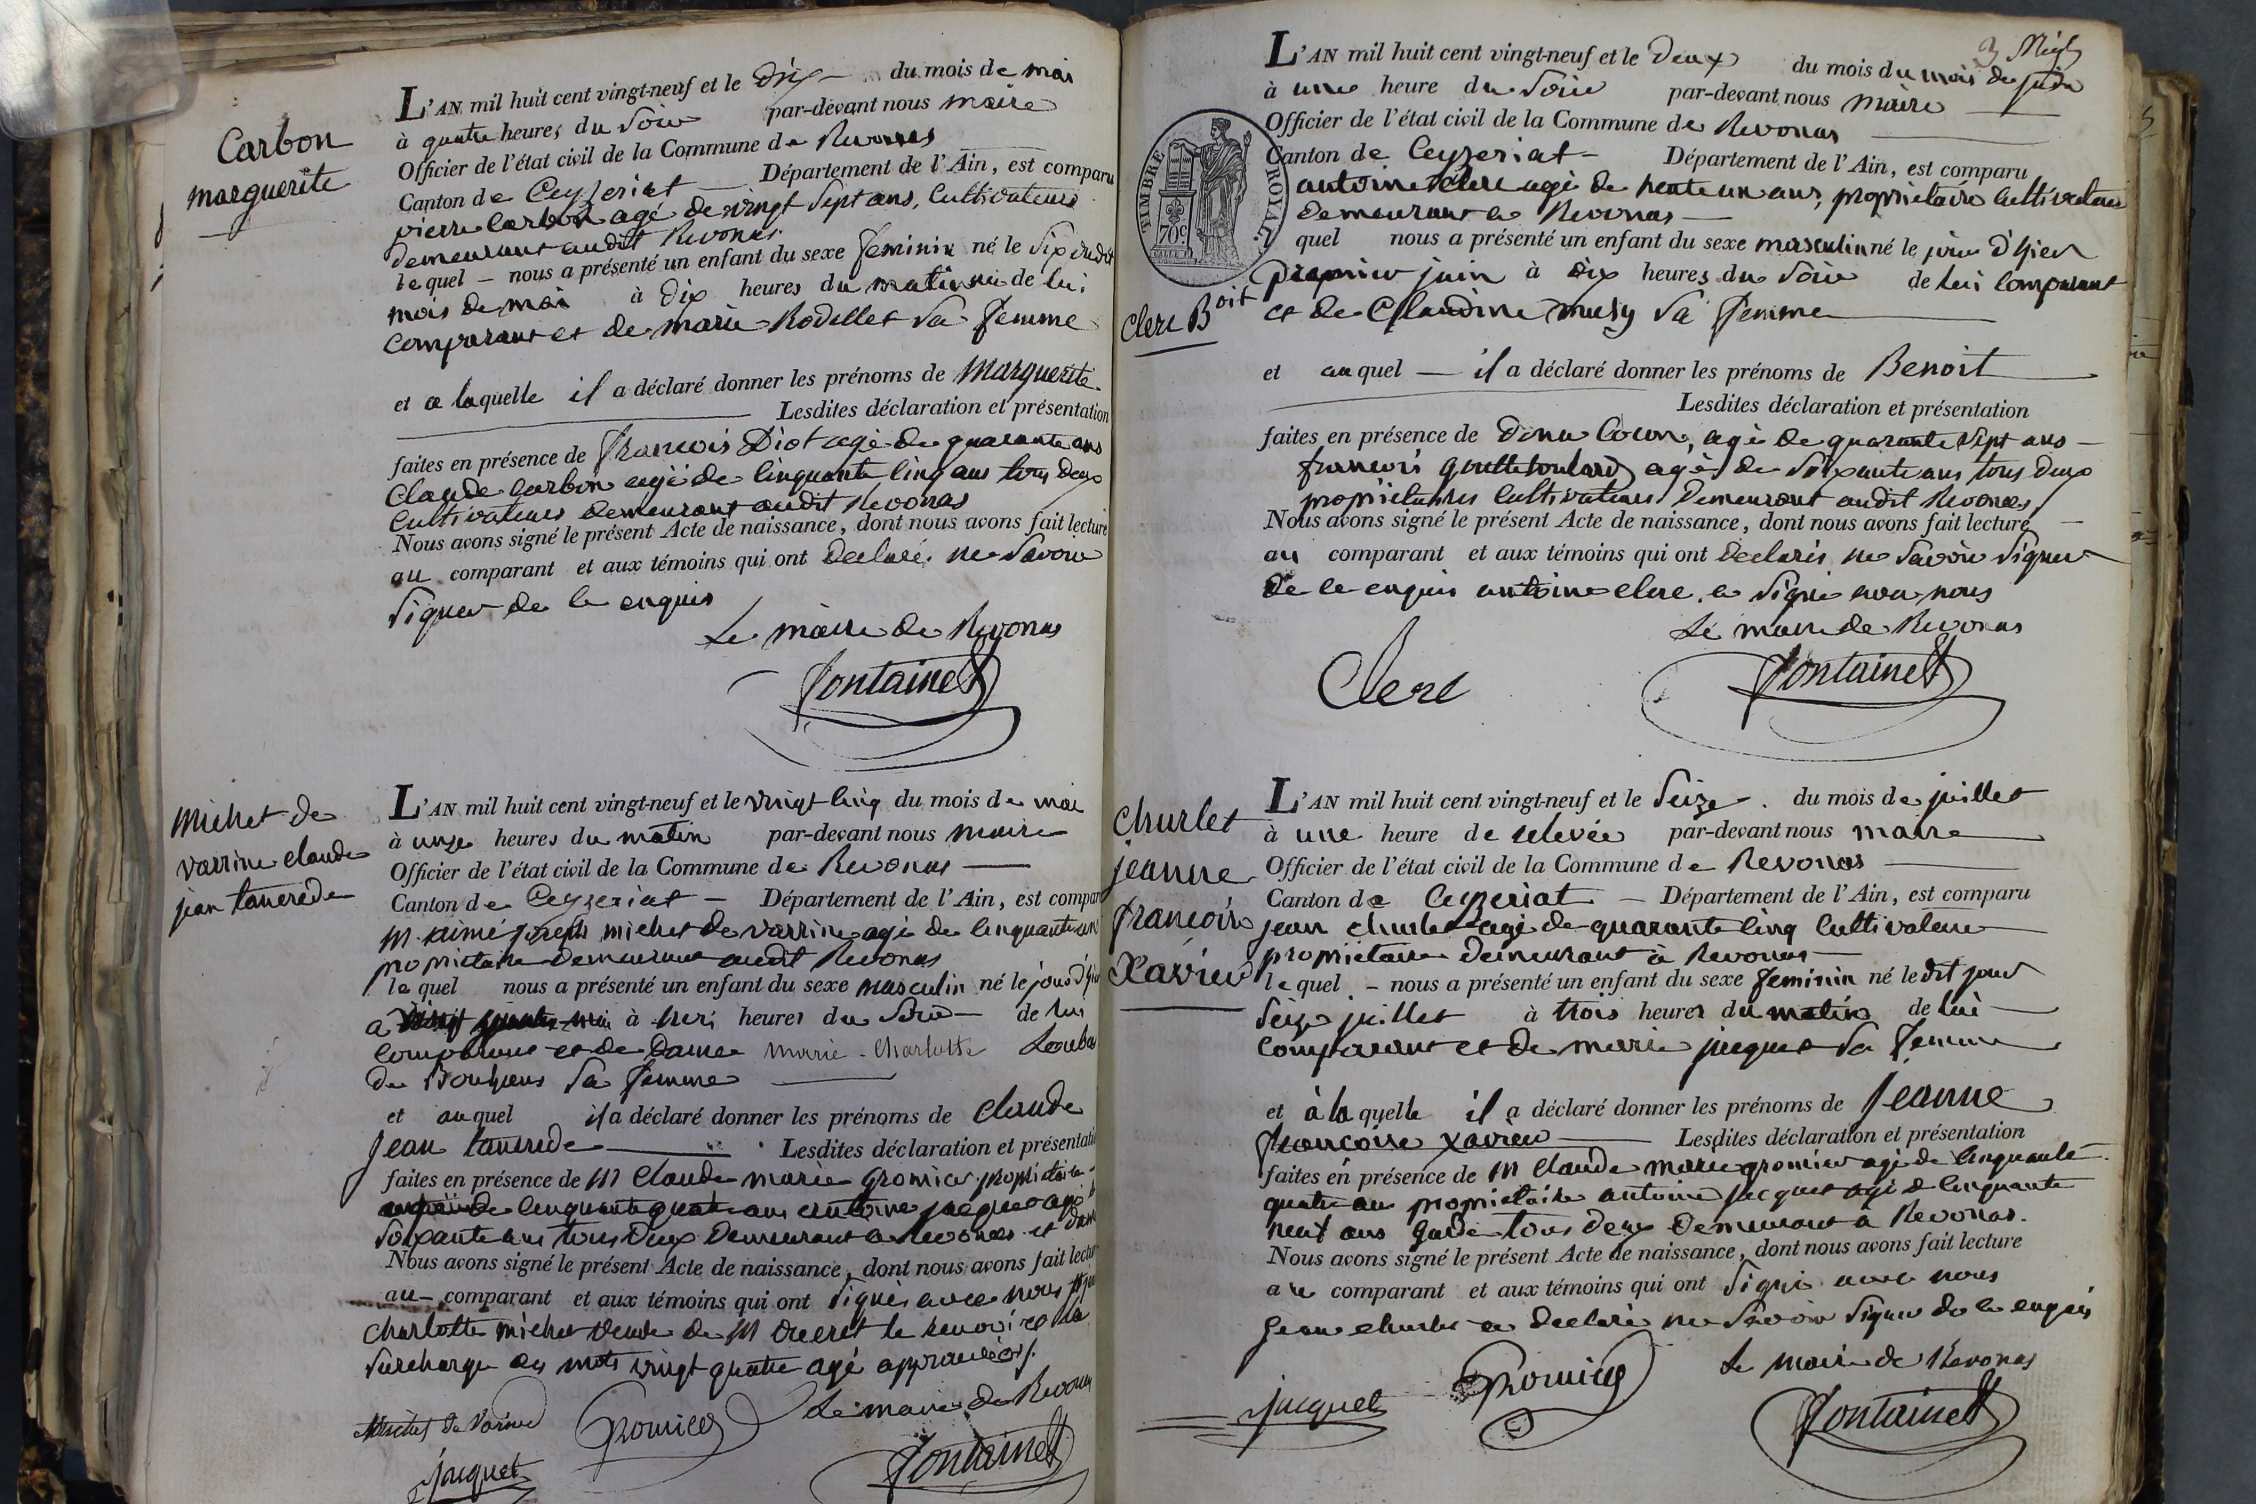 Carbon
marguerite
L'AN mil huit cent vingt-neuf et le dix du mois de mai
à quatre heures du Soir par-devant nous maire
Officier de l'état civil de la Commune de Revonas
Canton de Ceyzeriat Département de l'Ain, est comparu
pierre Carbon agé de vingt Sept ans, Cultivateur
demeurant audit Revonas
lequel nous a présenté un enfant du sexe feminin né le Six dudit
mois de mai à dix heures du matin de lui
Comparant et de marie Rodellet Sa femme
et a laquelle il a déclaré donner les prénoms de Marguerite
Lesdites déclaration et présentation
faites en présence de françois Diot agé de quarante ans
Claude Carbon agé de Cinquante Cinq ans tous deux
Cultivateurs demeurant audit Revonas
Nous avons signé le présent Acte de naissance, dont nous avons fait lecture
au comparant et aux témoins qui ont declaré ne Savoir
Signer de ce enquis
Le maire de Revonas
Fontainet
michet de
varrine claude
jean tancrede
L'AN mil huit cent vingt-neuf et le vingt-cinq du mois de mai
à onze heures du matin par-devant nous maire
Officier de l'état civil de la Commune de Revonas
Canton de Ceyzeriat Département de l'Ain, est compar
M. aimé joseph michet de varrine agé de Cinquante
proprietaire demeurant audit Revonas
lequel nous a présenté un enfant du sexe masculin né le jour d'hier
à heures du Soir de lui
Comparant et de Dame marie Charlotte
de Sa femme
et auquel il a déclaré donner les prénoms de Claude
Jean tancrede Lesdites déclaration et présentati
faites en présence de M Claude marie Gromier proprietaire
de Cinquante quatre ans antoine jacquet agé
Soixante ans tous deux demeurant a Revonas et dame
Nous avons signé le présent Acte de naissance, dont nous avons fait lectur
au comparant et aux témoins qui ont Signés avec nous
Charlotte michet veuve de M la
Surcharge des mots vingt quatre agé approuvés
Michet de Varine Gromier Le maire de Revonas
Jacquet Fontainet
L'AN mil huit cent vingt-neuf et le deux du mois du mois de juin
à une heure du Soir par-devant nous maire
Officier de l'état civil de la Commune de Revonas
TIMBRE ROYAL.
70c
Canton de Ceyzeriat Département de l'Ain, est comparu
antoine Clerc agé de trente un ans, proprietaire Cultivateur
demeurant a Revonas
quel nous a présenté un enfant du sexe masculin né le jour d'hier
premier juin à dix heures du Soir de lui Comparant
Clerc Boit
et de Claudine musy Sa femme
et auquel il a déclaré donner les prénoms de Benoit
Lesdites déclaration et présentation
faites en présence de agé de quarante Sept ans
françois goutte agé de Soixante ans tous deux
proprietaires Cultivateurs demeurant audit Revonas
Nous avons signé le présent Acte de naissance, dont nous avons fait lecture
au comparant et aux témoins qui ont declarés ne Savoir Signer
de ce enquis antoine clerc a Signé avec nous
Le maire de Revonas
Clerc Fontainet
Churlet
jeanne
françoise
Xavier
L'AN mil huit cent vingt-neuf et le Seize du mois de juillet
à une heure de relevée par-devant nous maire
Officier de l'état civil de la Commune de Revonas
Canton de Ceyzeriat Département de l'Ain, est comparu
jean Churlet agé de quarante Cinq Cultivateur
proprietaire demeurant à Revonas
lequel nous a présenté un enfant du sexe feminin né le dit jour
Seize juillet à trois heures du matin de lui
Comparant et de marie jacquet Sa femme
et à laquelle il a déclaré donner les prénoms de Jeanne
françoise xavier Lesdites déclaration et présentation
faites en présence de M Claude marie gromier agé de Cinquante
quatre ans proprietaire antoine jacquet agé de Cinquante
neuf ans garde tous deux demeurant à Revonas.
Nous avons signé le présent Acte de naissance, dont nous avons fait lecture
au comparant et aux témoins qui ont Signé avec nous
Jean churlet a declaré ne Savoir Signer de ce enquis
Le maire de Revonas
Jacquet Gromier Fontainet